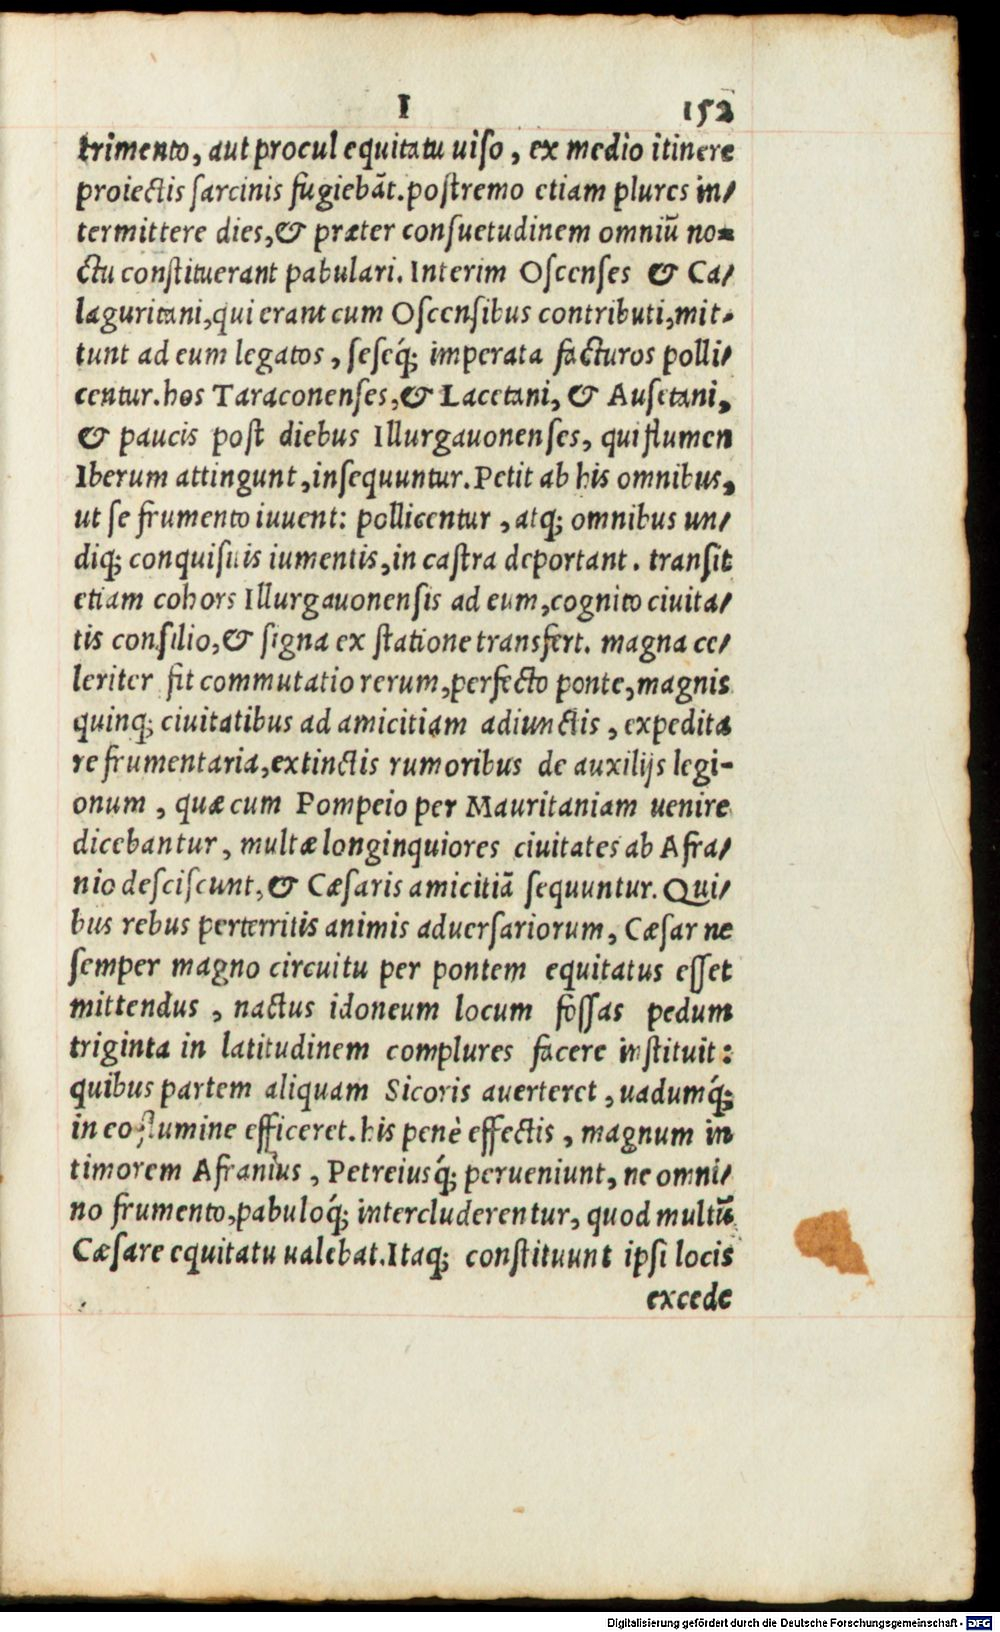 I 152
trimento, aut procul equitatu uiso, ex medio itinere
proiectis sarcinis fugiebāt. postremo etiam plures in/
termittere dies, & præter consuetudinem omniū no-
ctu constituerant pabulari. Interim Oscenses & Ca/
laguritani, qui erant cum Oscensibus contributi, mit-
tunt ad eum legatos, seseq́; imperata facturos polli/
centur. hos Taraconenses, & Lacetani, & Ausetani,
& paucis post diebus Illurgauonenses, qui flumen
Iberum attingunt, insequuntur. Petit ab his omnibus,
ut se frumento iuuent: pollicentur, atq; omnibus un/
diq; conquisitis iumentis, in castra deportant. transit
etiam cohors Illurgauonensis ad eum, cognito ciuita/
tis consilio, & signa ex statione transfert. magna ce/
leriter fit commutatio rerum, perfecto ponte, magnis
quinq; ciuitatibus ad amicitiam adiunctis, expedita
re frumentaria, extinctis rumoribus de auxilijs legi-
onum, quæ cum Pompeio per Mauritaniam uenire
dicebantur, multæ longinquiores ciuitates ab Afra/
nio desciscunt, & Cæsaris amicitiā sequuntur. Qui/
bus rebus perterritis animis aduersariorum, Cæsar ne
semper magno circuitu per pontem equitatus esset
mittendus, nactus idoneum locum fossas pedum
triginta in latitudinem complures facere instituit:
quibus partem aliquam Sicoris auerteret, uadumq́;
in eo flumine efficeret. his penè effectis, magnum in
timorem Afranius, Petreiusq́; perueniunt, ne omni/
no frumento, pabuloq́; intercluderentur, quod multū
Cæsare equitatu ualebat. Itaq; constituunt ipsi locis
excede
Digitalisierung gefördert durch die Deutsche Forschungsgemeinschaft - DFG